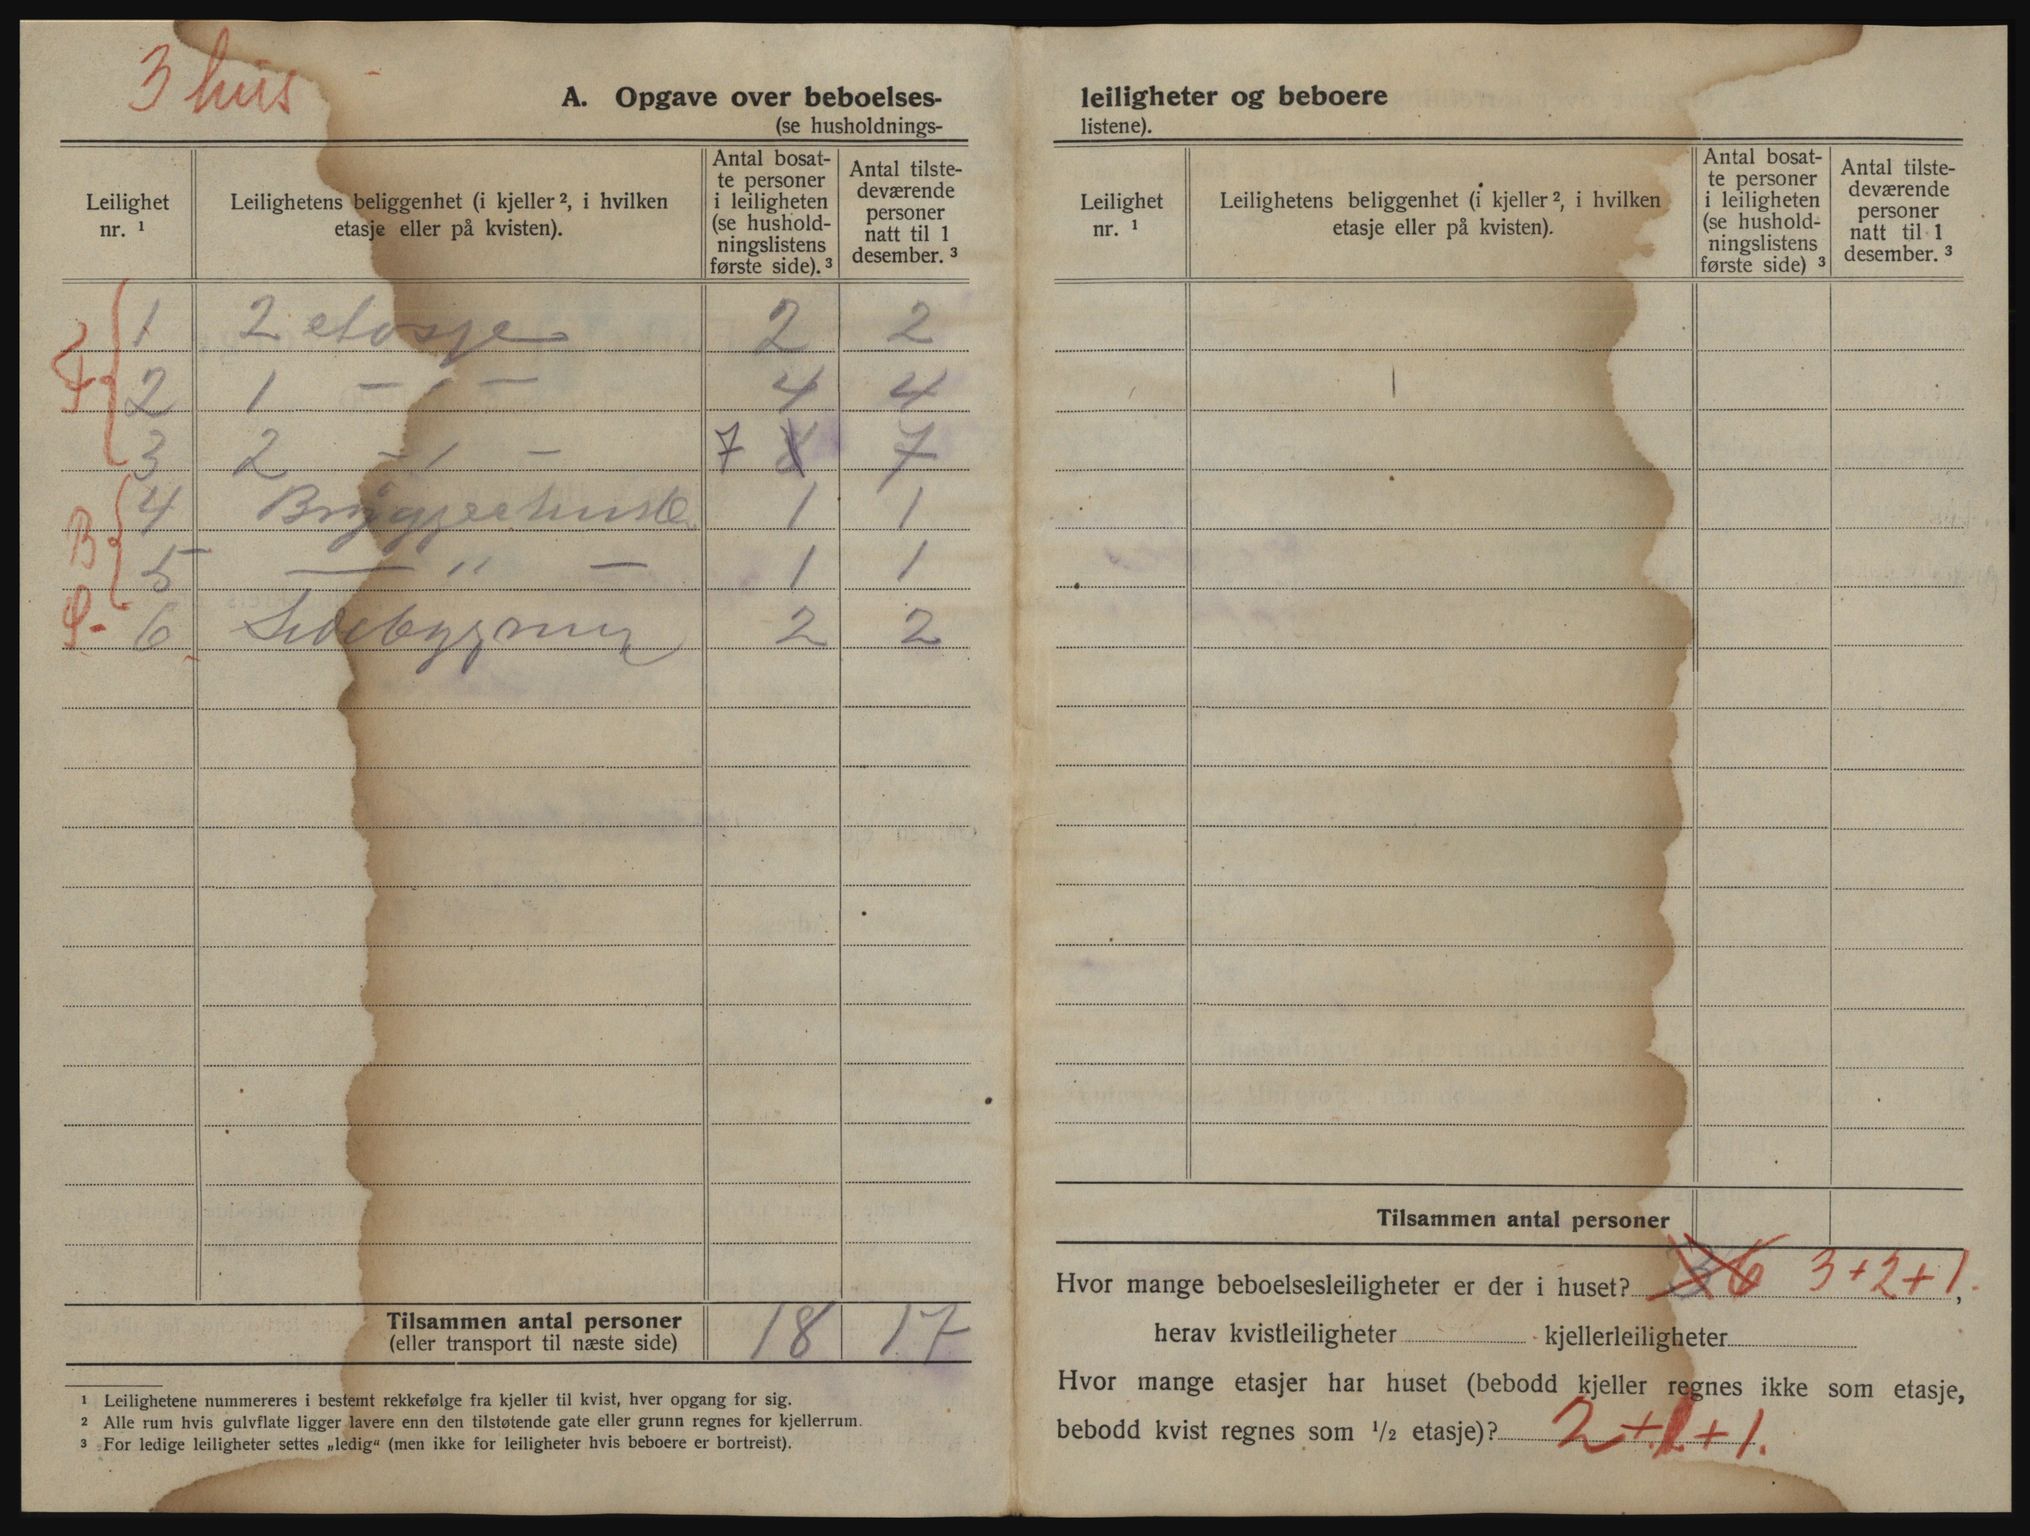 3 hus
A. Opgave over beboelses-
(se husholdnings-
Leilighet nr. ¹
Leilighetens beliggenhet (i kjeller ², i hvilken etasje eller på kvisten).
Antal bosatte personer i leiligheten (se husholdningslistens første side). ³
Antal tilstedeværende personer natt til 1 desember. ³
F
1 2 etasje 2 2
2 1 — " — 4 4
3 2 — " — 7 8 7
B
4 1 1
5 — " — 1 1
S.
6 Sidebygning 2 2
Tilsammen antal personer 18 17
(eller transport til næste side)
¹ Leilighetene nummereres i bestemt rekkefølge fra kjeller til kvist, hver opgang for sig.
² Alle rum hvis gulvflate ligger lavere enn den tilstøtende gate eller grunn regnes for kjellerrum.
³ For ledige leiligheter settes „ledig“ (men ikke for leiligheter hvis beboere er bortreist).
leiligheter og beboere
listene).
Leilighet nr. ¹
Leilighetens beliggenhet (i kjeller ², i hvilken etasje eller på kvisten).
Antal bosatte personer i leiligheten (se husholdningslistens første side) ³
Antal tilstedeværende personer natt til 1 desember. ³
Tilsammen antal personer
Hvor mange beboelsesleiligheter er der i huset? 3 6 3+2+1.,
herav kvistleiligheter kjellerleiligheter
Hvor mange etasjer har huset (bebodd kjeller regnes ikke som etasje,
bebodd kvist regnes som ½ etasje)? 2+1+1.